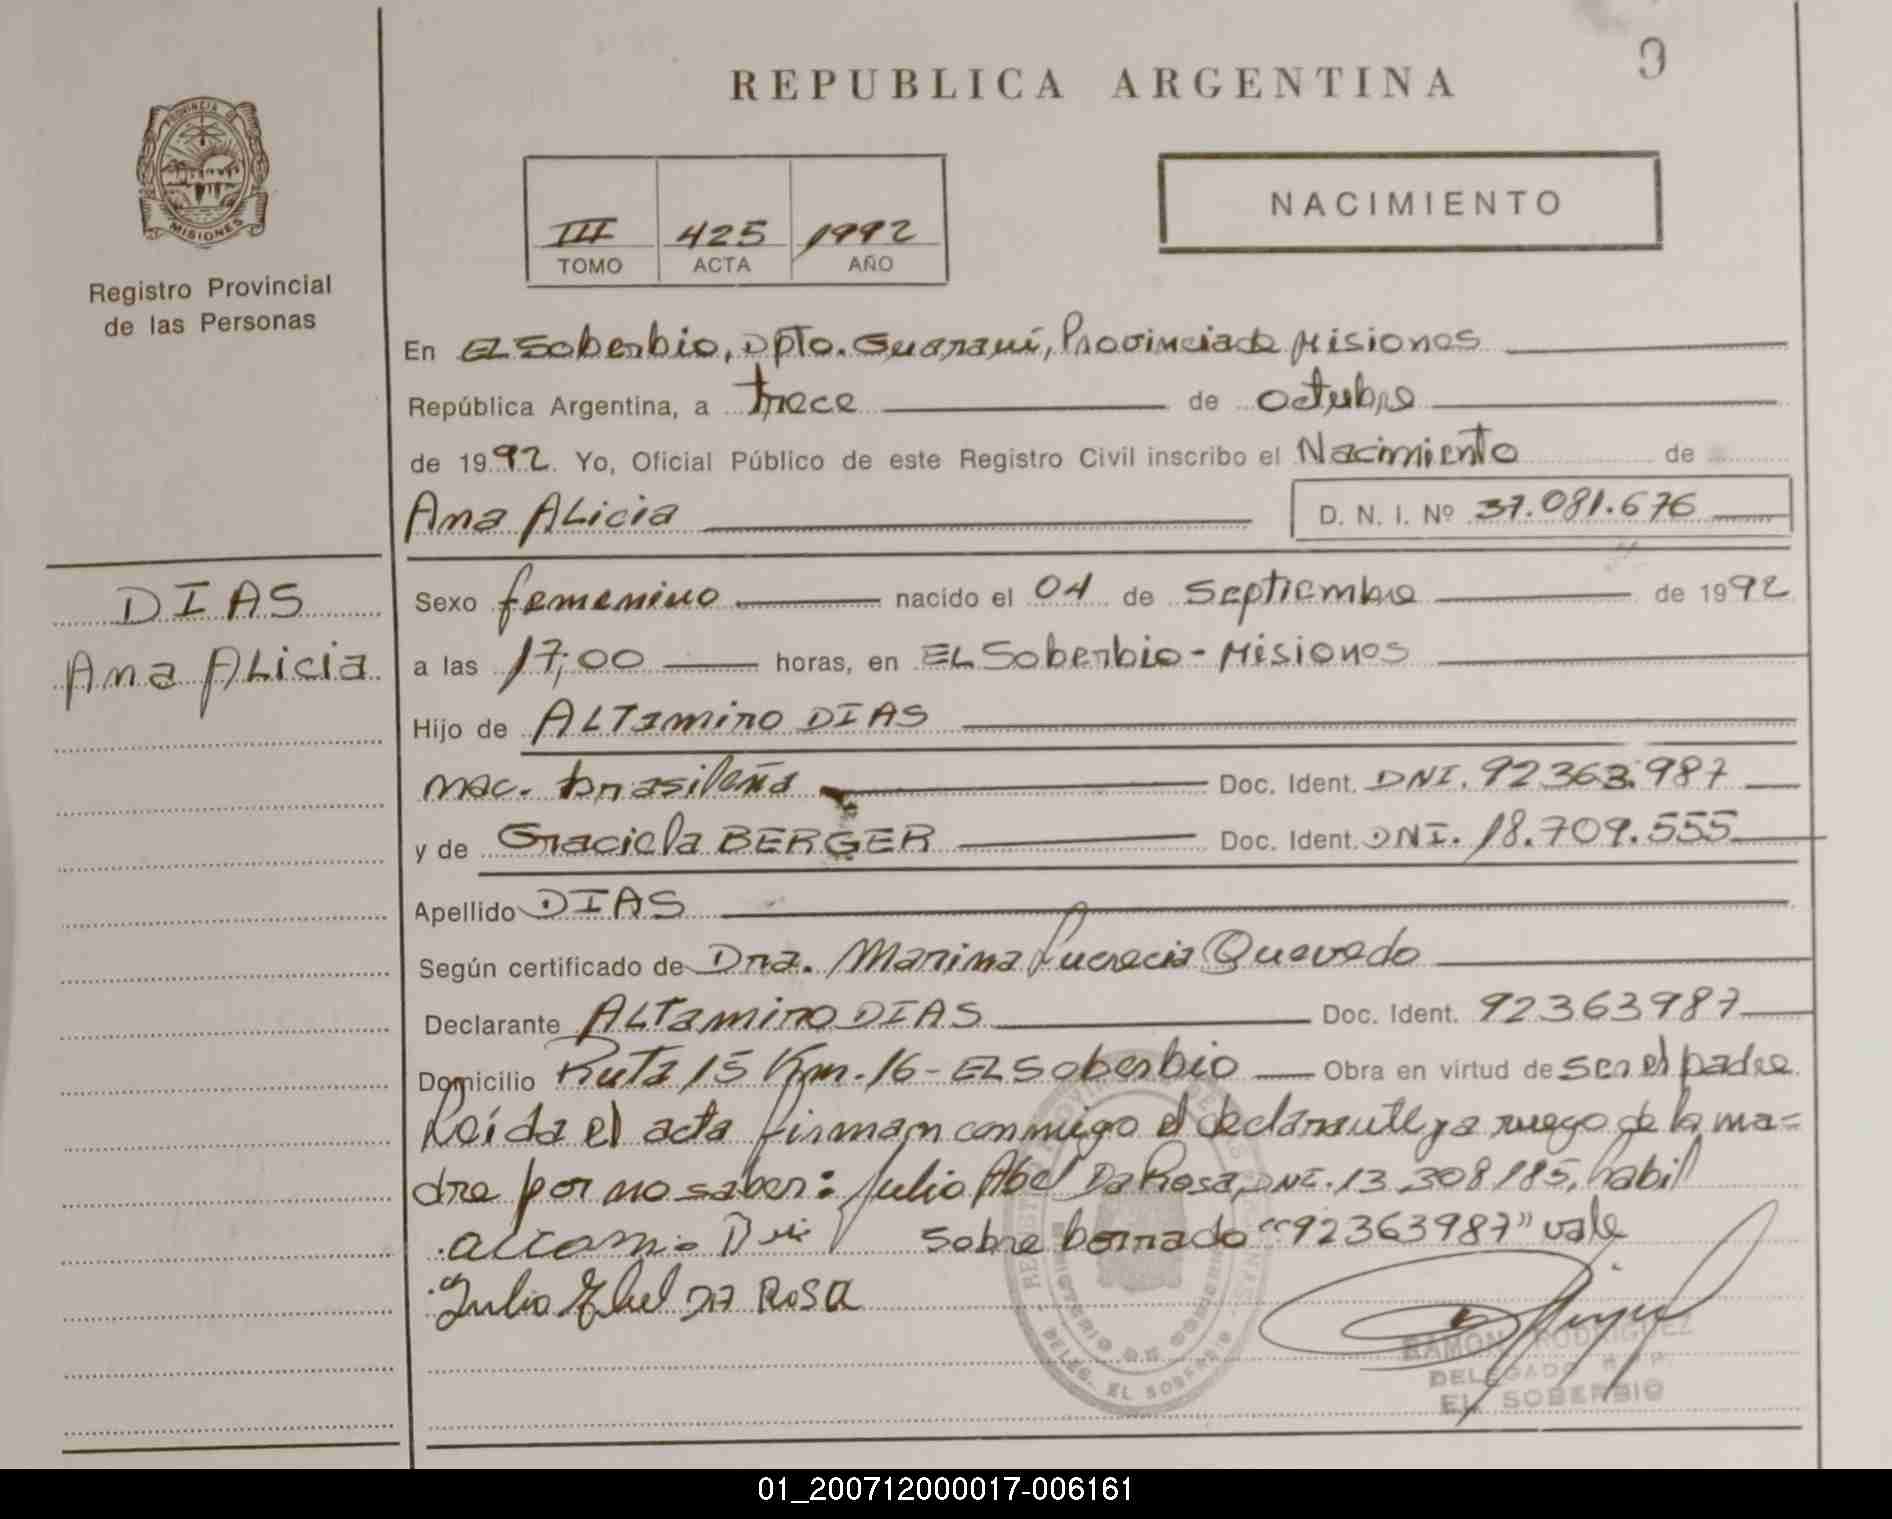 9
REPUBLICA ARGENTINA
PROVINCIA DE
MISIONES
Registro Provincial
de las Personas
III 425 1992
TOMO ACTA AÑO
NACIMIENTO
En EL Soberbio, Dpto. Guaraní, Provincia de Misiones
República Argentina, a trece de octubre
de 1992. Yo, Oficial Público de este Registro Civil inscribo el Nacimiento de
Ana ALicia D. N. I. Nº 37.081.676
DIAS
Ana ALicia
Sexo femenino nacido el 04 de Septiembre de 1992
a las 17,00 horas, en EL Soberbio - Misiones
Hijo de ALTamiro DIAS
nac. brasileña Doc. Ident. DNI. 92363.987
y de Graciela BERGER Doc. Ident. DNI. 18.709.555
Apellido DIAS
Según certificado de Dra. Marina Lucrecia Quevedo
Declarante ALTamiro DIAS Doc. Ident. 92363987
Domicilio Ruta 15 Km. 16 - EL Soberbio Obra en virtud de ser el padre
Leída el acta firman conmigo el declarante y a ruego de la ma=
dre por no saber: Julio Abel Da Rosa, DNI. 13.308.185, habil
sobre borrado "92363987" vale
Julio Abel DA ROSA
MINISTERIO DE GOBIERNO
DELEG. EL SOBERBIO
RAMON RODRIGUEZ
DELEGADO R. P.
EL SOBERBIO
01_200712000017-006161